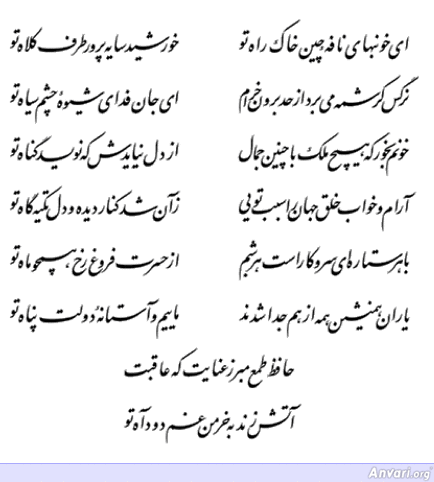 ای خونبهای نافه چین خاک راه تو خورشید سایه پرور طرف کلاه تو
نرگس کرشمه می برد از حد برون خرام ای جان فدای شیوهٔ چشم سیاه تو
خونم بخور که هیچ ملک با چنین جمال از دل نیایدش که نویسد گناه تو
آرام و خواب خلق جهان را سبب تویی زآن شد کنار دیده و دل تکیه گاه تو
با هر ستاره ای سر و کار است هر شبم از حسرت فروغ رخ همچو ماه تو
یاران همنشین همه از هم جدا شدند ماییم و آستانهٔ دولت پناه تو
حافظ طمع مبر ز عنایت که عاقبت
آتش زند به خرمن غم دود آه تو
Anvari.org